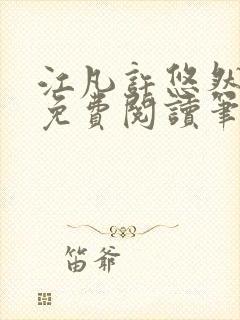 江凡許悠然
免費閱讀筆
笛爺